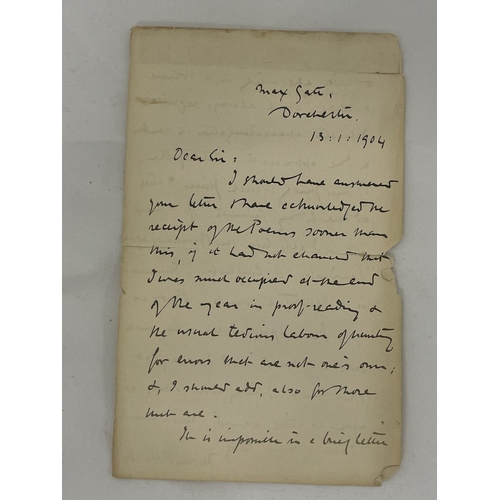 Max Gate,
Dorchester.
13:1:1904
Dear Sir:
I should have answered
your letter & have acknowledged the
receipt of the Poems sooner than
this, if it had not chanced that
I was much occupied at the end
of the year in proof-reading &
the usual tedious labour of hunting
for errors that are not one's own;
&, I should add, also for those
that are.
It is impossible in a brief letter